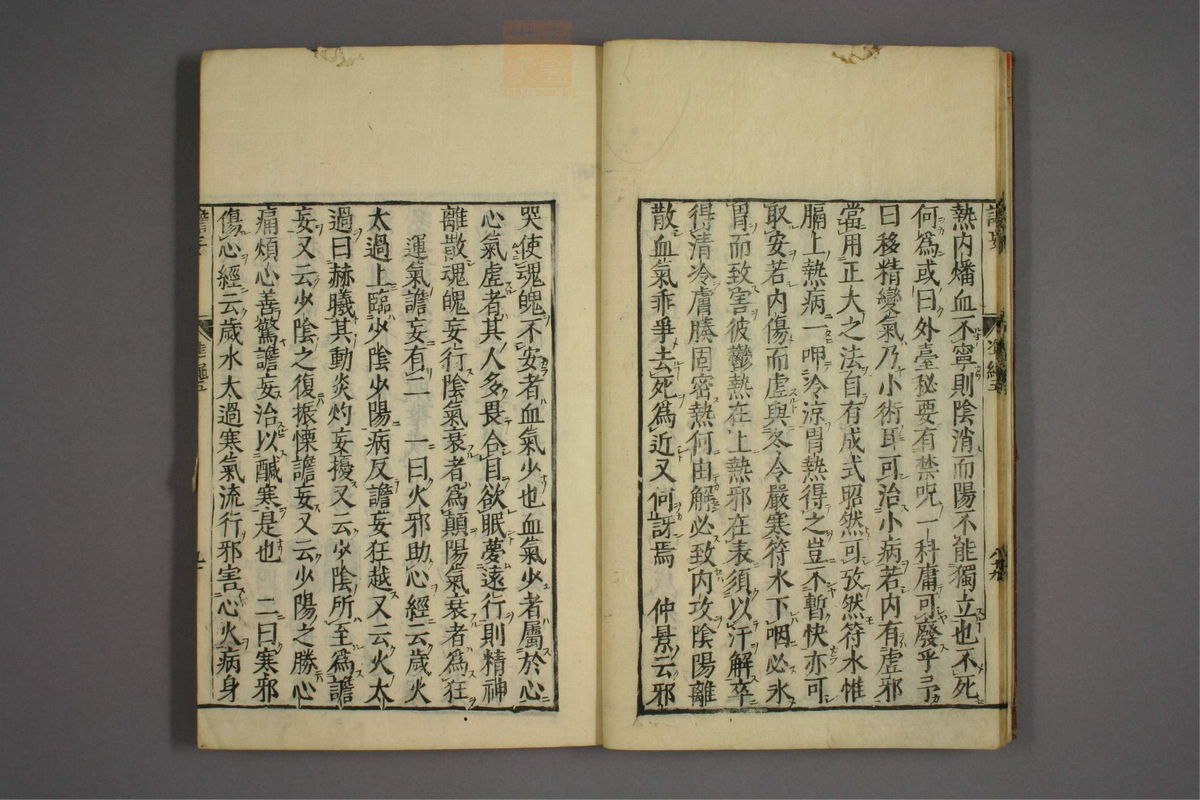 熱内燔血不寧則陰消而陽不能獨立也不死
何爲或曰外臺秘要有禁呪一科庸可廢乎予
曰移精變氣乃小術耳可治小病若内有虛邪
當用正大之法自有成式昭然可攷然符水惟
膈上熱病一呷冷涼胃熱得之豈不暫快亦可
取安若内傷而虛與冬令嚴寒符水下咽必氷
胃而致害彼鬱熱在上熱邪在表須以汗解卒
得清冷膚腠固密熱何由解必致内攻陰陽離
散血氣乖爭去死爲近又何訝焉　仲景云邪
哭使魂魄不安者血氣少也血氣少者屬於心
心氣虛者其人多畏合目欲眠夢遠行則精神
離散魂魄妄行陰氣衰者爲顛陽氣衰者爲狂
運氣譫妄有二　一曰火邪助心經云歲火
太過上臨少陰少陽病反譫妄狂越又云火太
過曰赫曦其動炎灼妄擾又云少陰所至爲譫
妄又云少陰之復振慄譫妄又云少陽之勝心
痛煩心善驚譫妄治以鹹寒是也　二曰寒邪
傷心經云歲水太過寒氣流行邪害心火病身